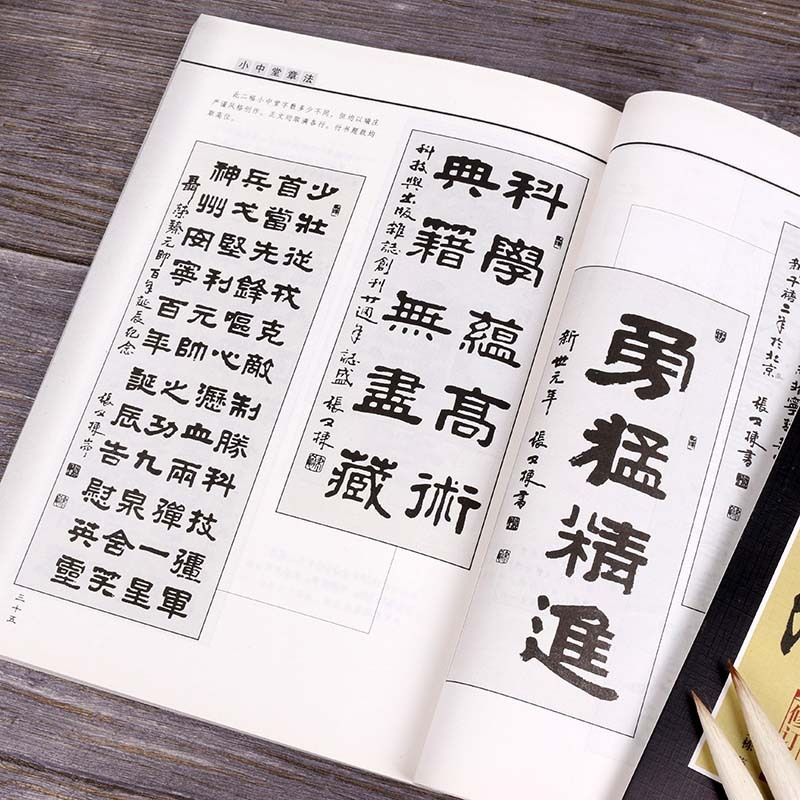 小中堂章法
此二幅小中堂字数多少不同，但均以端庄
严谨风格创作。正文均取满各行。行书题款均
取高位。
少壯從戎克敵制勝科技彊軍
首當先鋒嘔心瀝血兩彈一星
兵戈堅利元帥之功九泉含笑
神州安寧百年誕辰告慰英靈
聶榮臻元帥百年誕辰紀念 張又棟
三十五
科學蘊高術
典籍無盡藏
科技與出版雜誌創刊廿週年誌盛 張又棟
勇猛精進
新世元年 張又棟書
新千禧二年於北京 張又棟書
修订